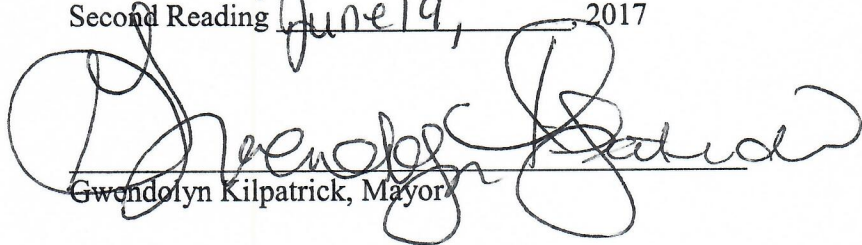 Second Reading June 19, 2017
Gwendolyn Kilpatrick
Gwendolyn Kilpatrick, Mayor